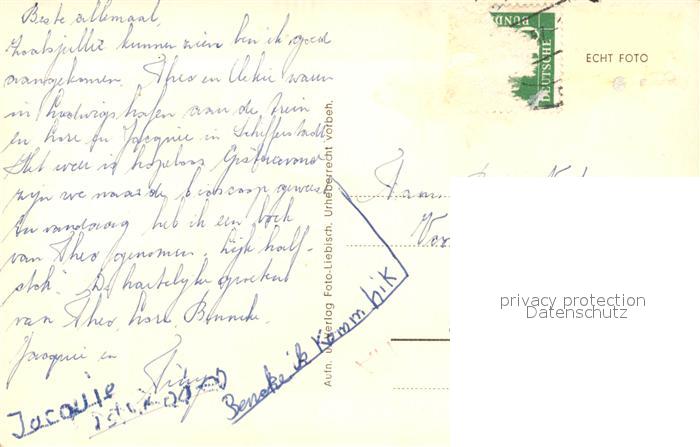 Beste allemaal,
zoals jullie kunnen zien ben ik goed
aangekomen. Theo en waren
in Ludwigshafen aan de trein
en Lore en Jacquie in Schifferstadt
Het weer is hopeloos. Gisteravond
zijn we naar de bioscoop geweest
en vandaag heb ik een boek
van Theo genomen.
De hartelijke groeten
van Theo, Lore, Benneke,
Jacquie en
Jacquie
Benneke ik komm
Aufn. u. Verlag Foto-Liebisch. Urheberrecht vorbeh.
DEUTSCHE
BUND
ECHT FOTO
privacy protection
Datenschutz